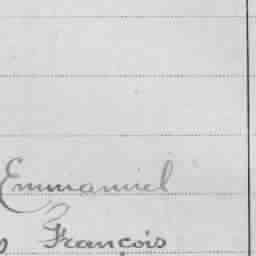 Emmanuel
François